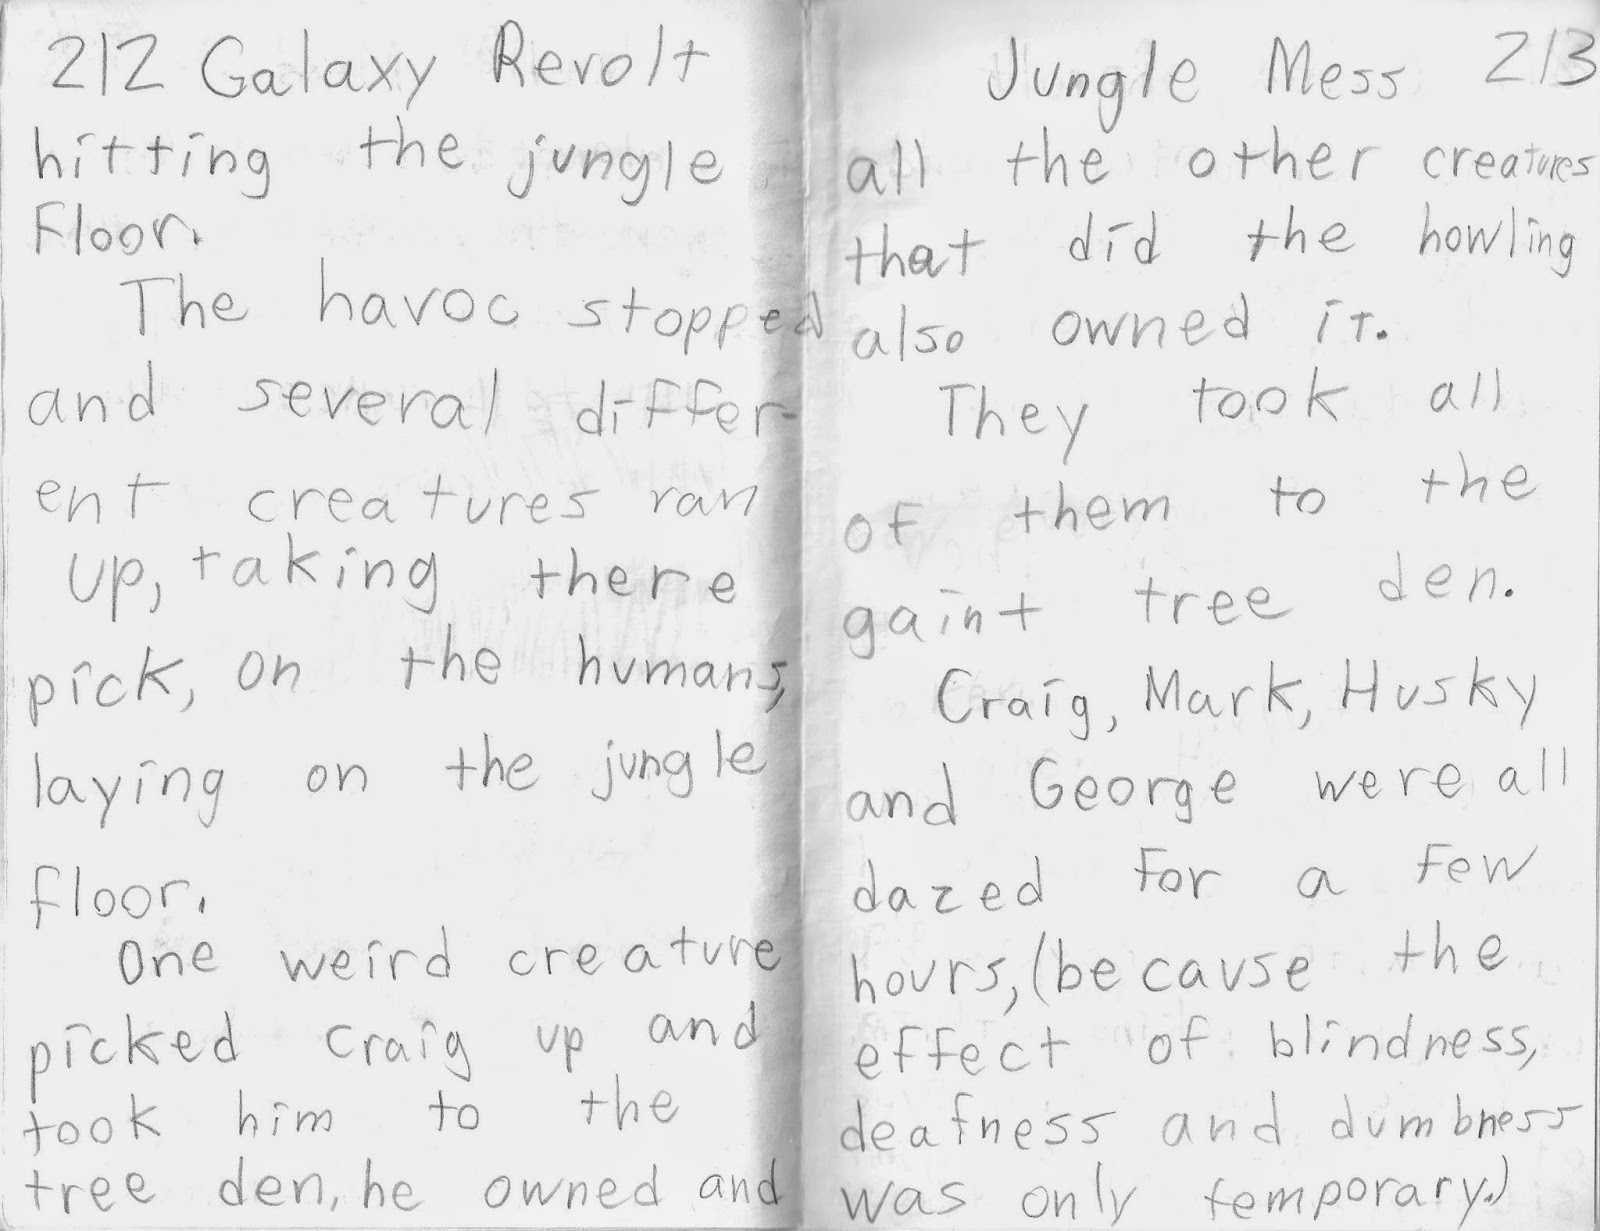 212 Galaxy Revolt
hitting the jungle
floor.
The havoc stopped
and several differ-
ent creatures ran
up, taking there
pick, on the humans,
laying on the jungle
floor.
One weird creature
picked Craig up and
took him to the
tree den, he owned and
Jungle Mess 213
all the other creatures
that did the howling
also owned it.
They took all
of them to the
gaint tree den.
Craig, Mark, Husky
and George were all
dazed for a few
hours, (because the
effect of blindness,
deafness and dumbness
was only temporary.)